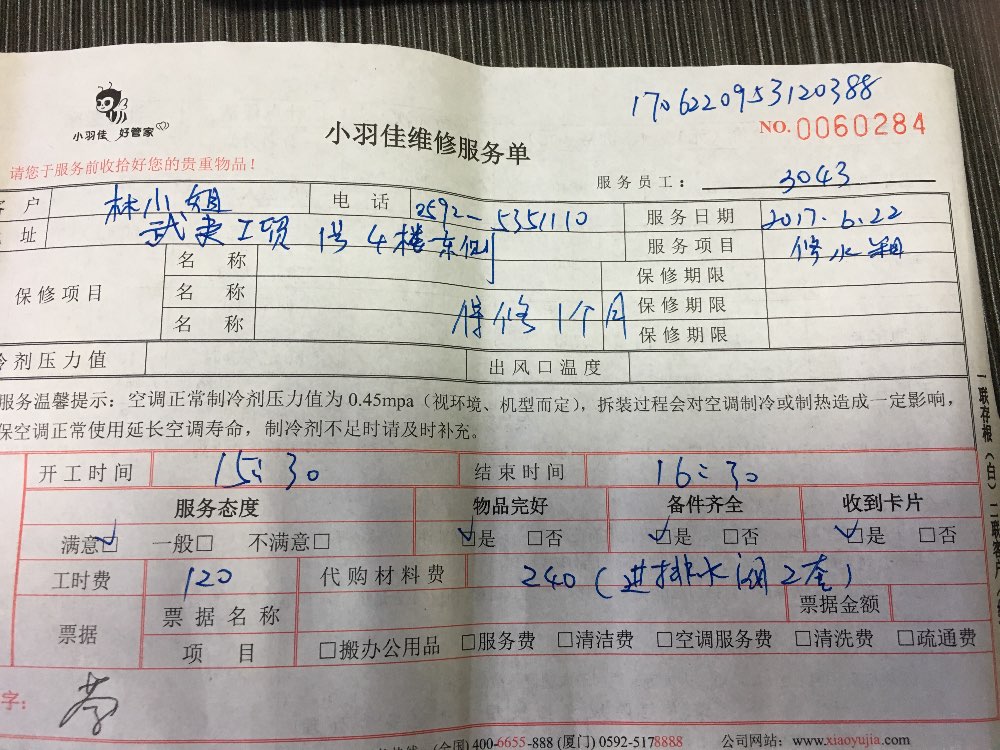 1706220953120388
小羽佳 好管家
小羽佳维修服务单
NO. 0060284
请您于服务前收拾好您的贵重物品！
服务员工： 3043
客 户 林小姐 电 话 0592-5351110 服务日期 2017.6.22
址 武夷工贸 1号4楼东侧 服务项目 修水箱
保修项目 名 称 保修期限
名 称 保修1个月 保修期限
名 称 保修期限
冷剂压力值 出风口温度
服务温馨提示：空调正常制冷剂压力值为 0.45mpa（视环境、机型而定），拆装过程会对空调制冷或制热造成一定影响，
保空调正常使用延长空调寿命，制冷剂不足时请及时补充。
开工时间 15:30 结束时间 16:30
服务态度 物品完好 备件齐全 收到卡片
满意☑ 一般□ 不满意□ ☑是 □否 ☑是 □否 ☑是 □否
工时费 120 代购材料费 240（进排水阀2套）
票据 票据名称 票据金额
项 目 □搬办公用品 □服务费 □清洁费 □空调服务费 □清洗费 □疏通费
字：
(全国) 400-6655-888 (厦门) 0592-5178888 公司网站：www.xiaoyujia.com
一联存根（白）二联客户